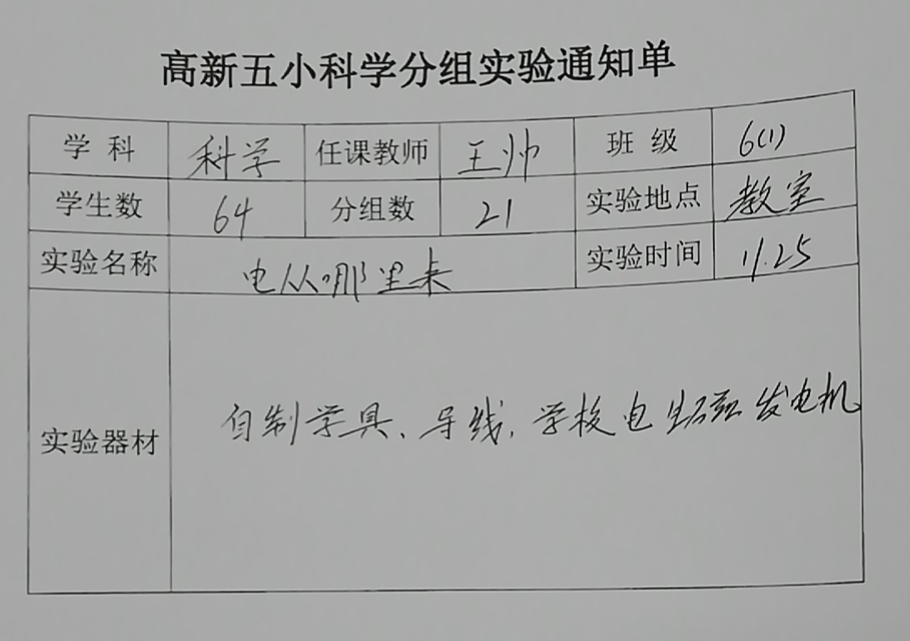 高新五小科学分组实验通知单
学科 科学 任课教师 王帅 班级 6(1)
学生数 64 分组数 21 实验地点 教室
实验名称 电从哪里来 实验时间 11.25
实验器材 自制学具、导线,学校电生磁发电机